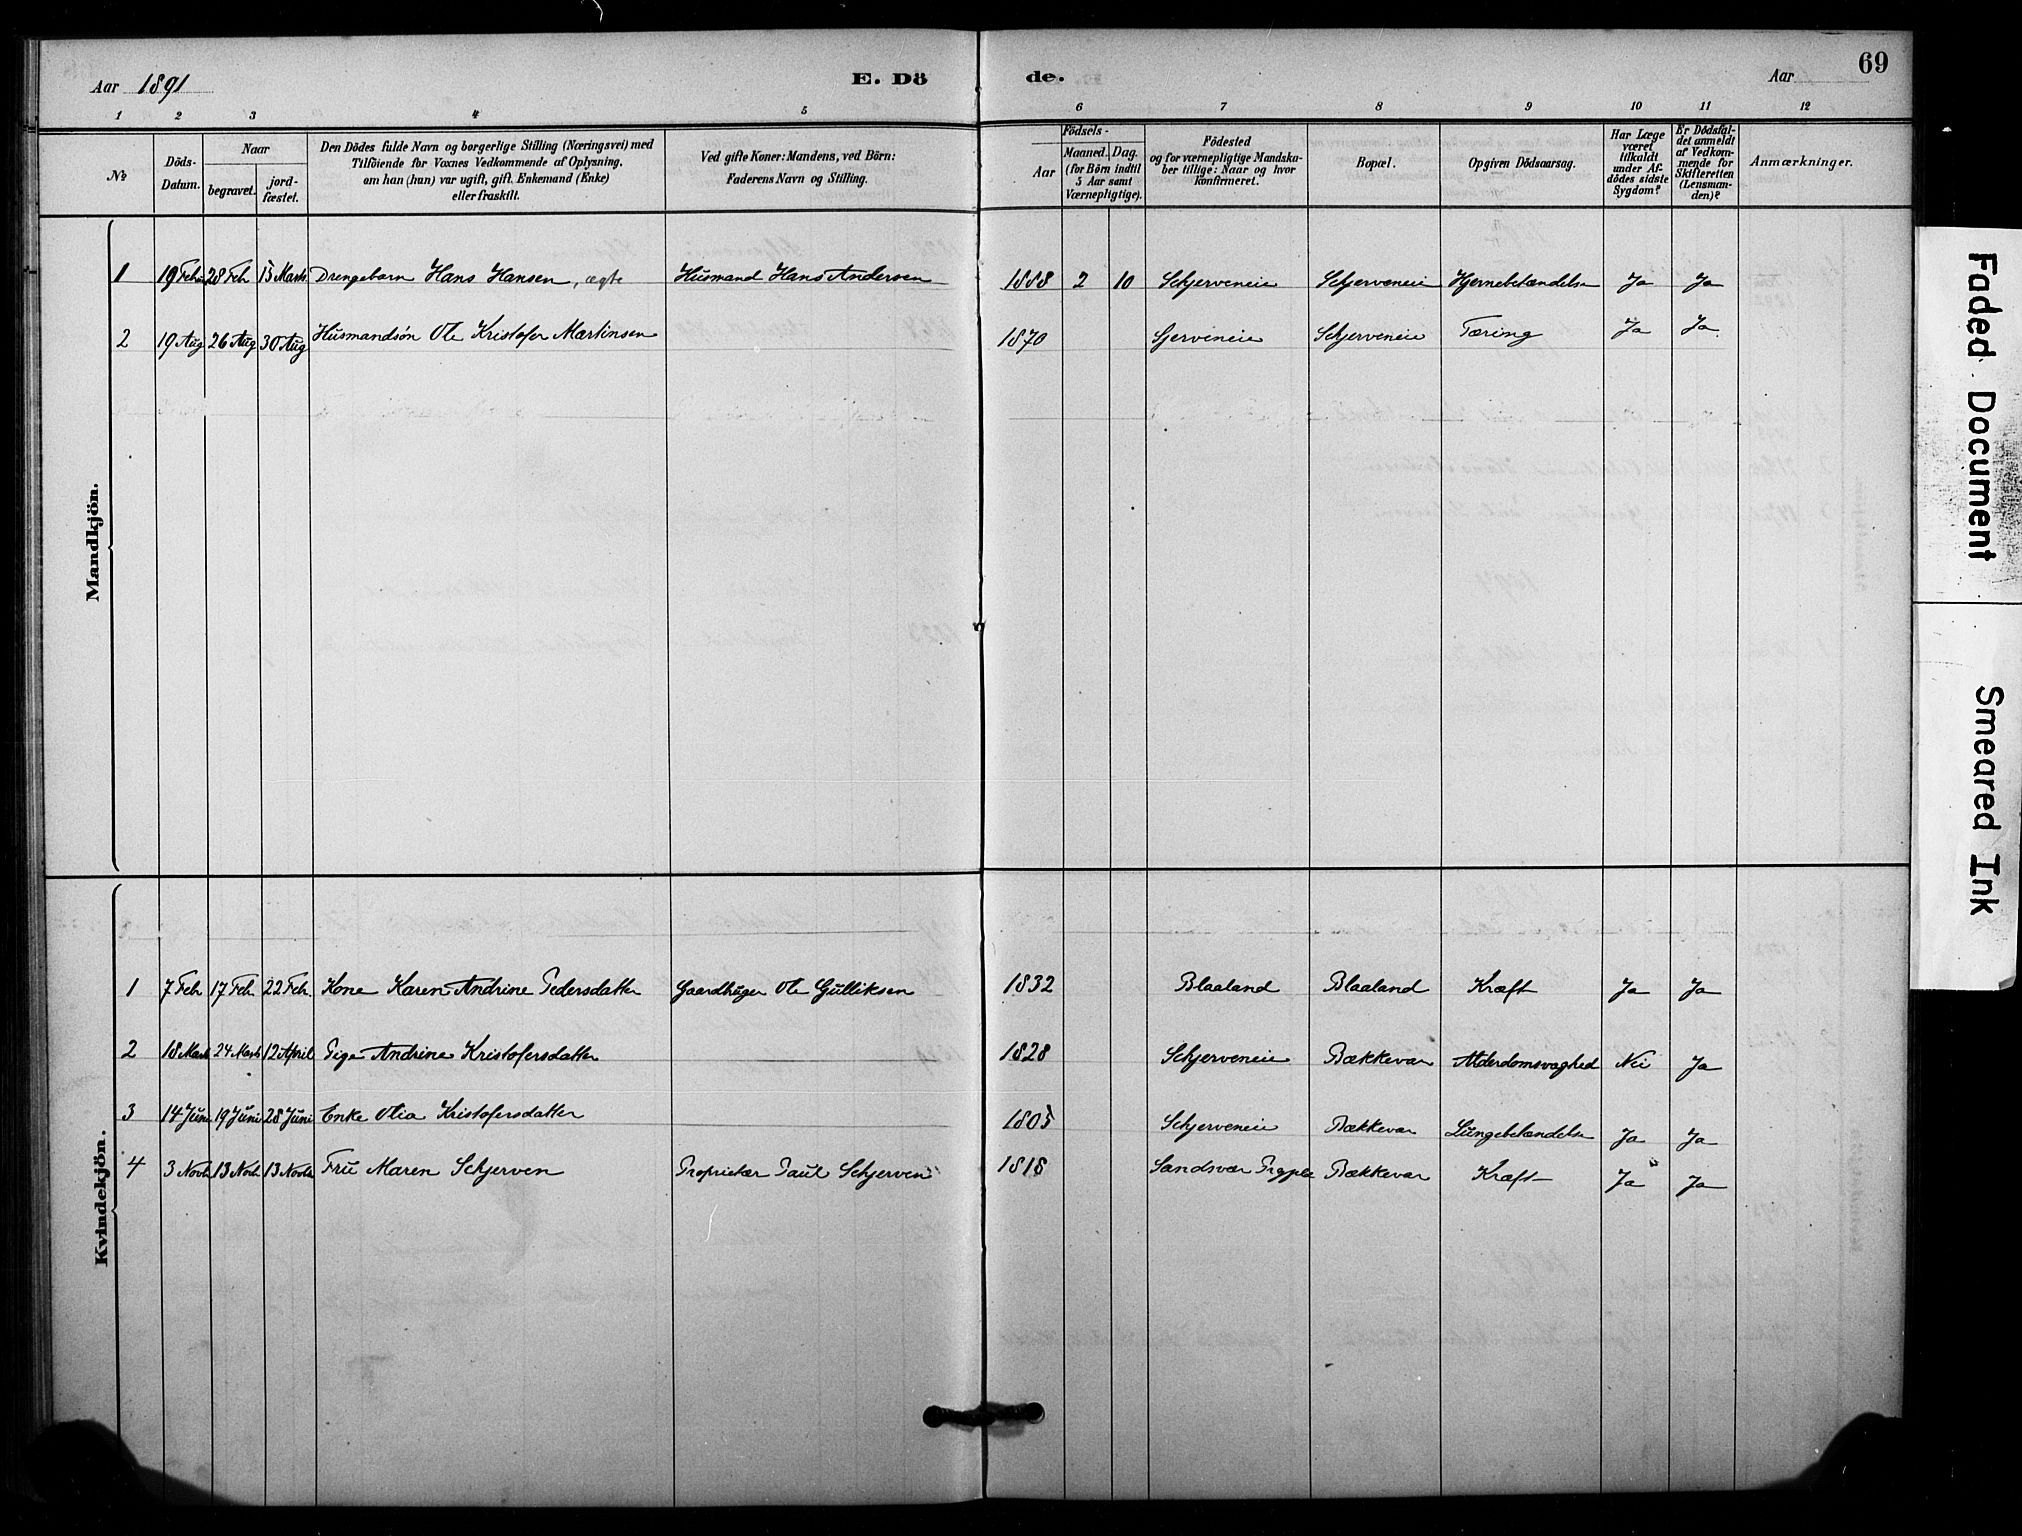 Aar 1891 E. Dö de. Aar 69
1 2 3 4 5 6 7 8 9 10 11 12
№
Döds-
Datum.
Naar
begravet.
jord-
fæstet.
Den Dödes fulde Navn og borgerlige Stilling (Næringsvei) med
Tilföiende for Voxnes Vedkommende af Oplysning,
om han (hun) var ugift, gift, Enkemand (Enke)
eller fraskilt.
Ved gifte Koner: Mandens, ved Börn:
Faderens Navn og Stilling.
Födsels-
Aar
Maaned.
Dag.
(for Börn indtil
5 Aar samt
Værnepligtige).
Födested
og for værnepligtige Mandska-
ber tillige: Naar og hvor
konfirmeret.
Bopæl.
Opgiven Dödsaarsag.
Har Læge
været
tilkaldt
under Af-
dödes sidste
Sygdom?
Er Dödsfal-
det anmeldt
af Vedkom-
mende for
Skifteretten
(Lensman-
den)?
Anmærkninger.
Mandkjön.
1 19 Feb 28 Feb 15 Marts Drengebarn Hans Hansen, ægte Husmand Hans Andersen 1888 2 10 Schjerveneie Schjerveneie Hjernebetændelse Ja Ja
2 19 Aug 26 Aug 30 Aug Husmandsön Ole Kristofer Martinsen 1870 Sjerveneie Schjerveneie Tæring Ja Ja.
Kvindekjön.
1 7 Feb 17 Feb 22 Feb. Kone Karen Andrine Pedersdatter Gaardbruger Ole Gulliksen 1832 Blaaland Blaaland Kræft Ja Ja
2 18 Marts 24 Marts 12 April Pige Andrine Kristofersdatter 1828 Schjerveneie Bækkevar Alderdomsvaghed Nei Ja
3 14 Juni 19 Juni 28 Juni Enke Olia Kristofersdatter 1805 Schjerveneie Bækkevar Lungebetændelse Ja Ja
4 3 Novb 13 Novb 13 Novb Fru Maren Schjerven Proprietær Paul Schjerven 1818 Sandsvær Bækkevar Kræft Ja Ja
Faded Document
Smeared Ink